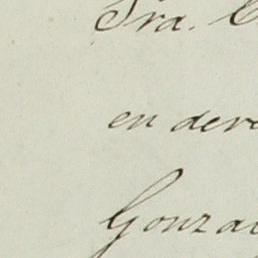 Sra. C
en dere
Gonza